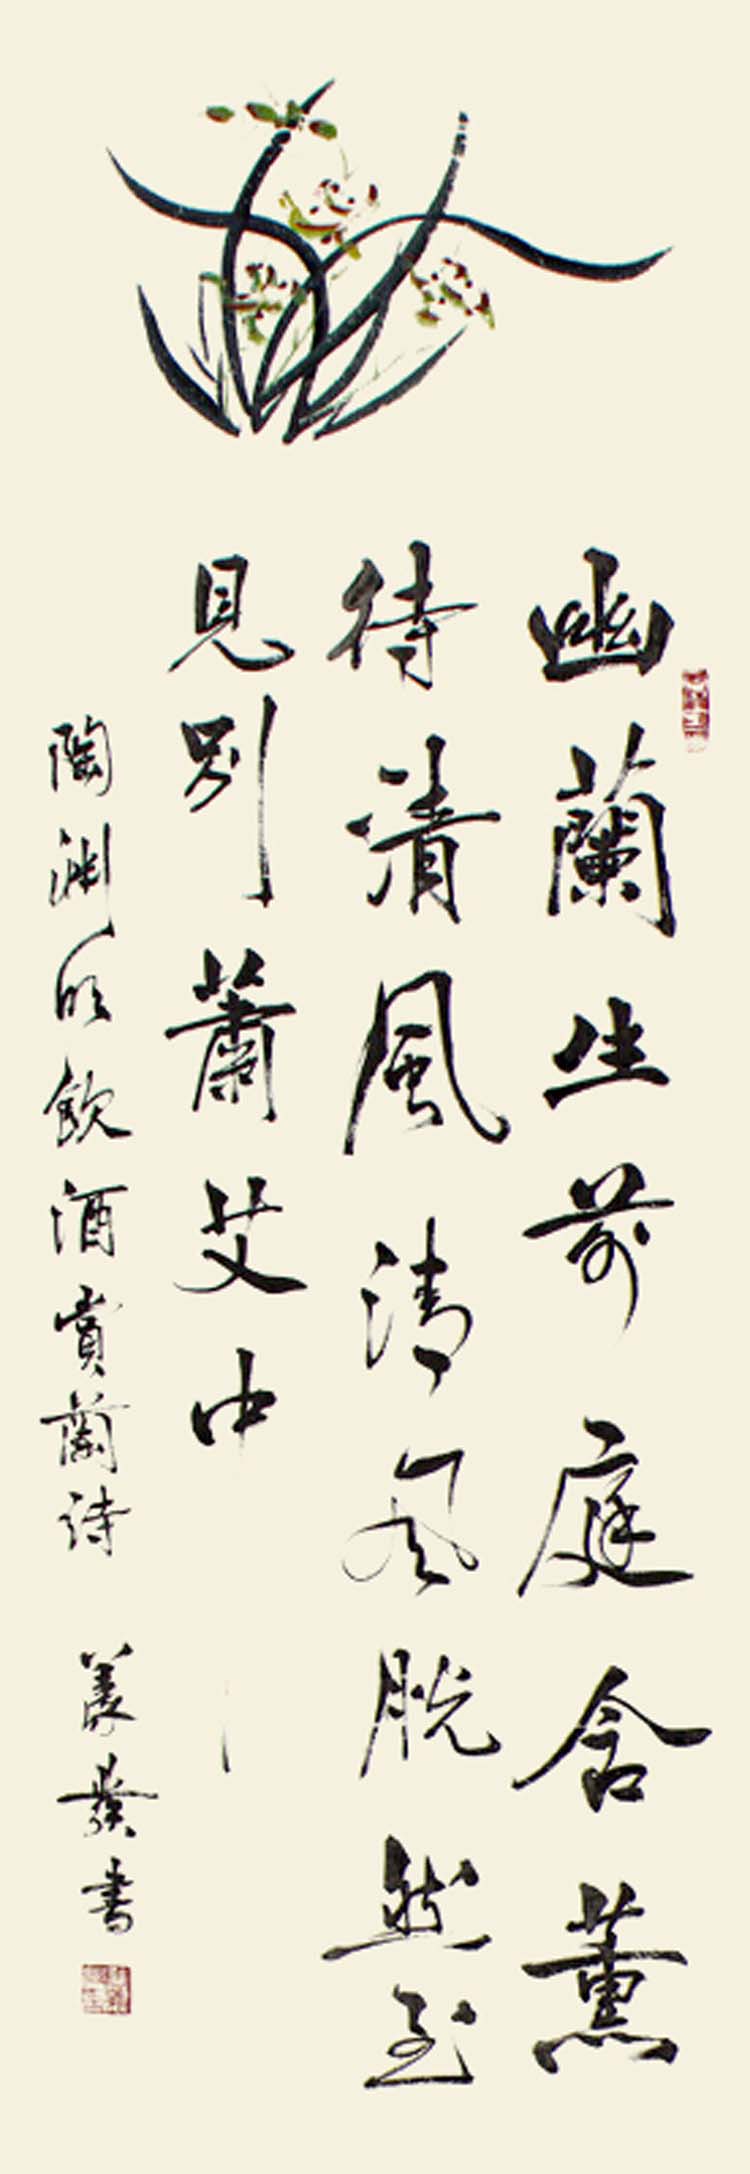 幽蘭生前庭含薰
待清風清風脱然至
見別蕭艾中
陶淵明飲酒賞蘭詩
義癸書